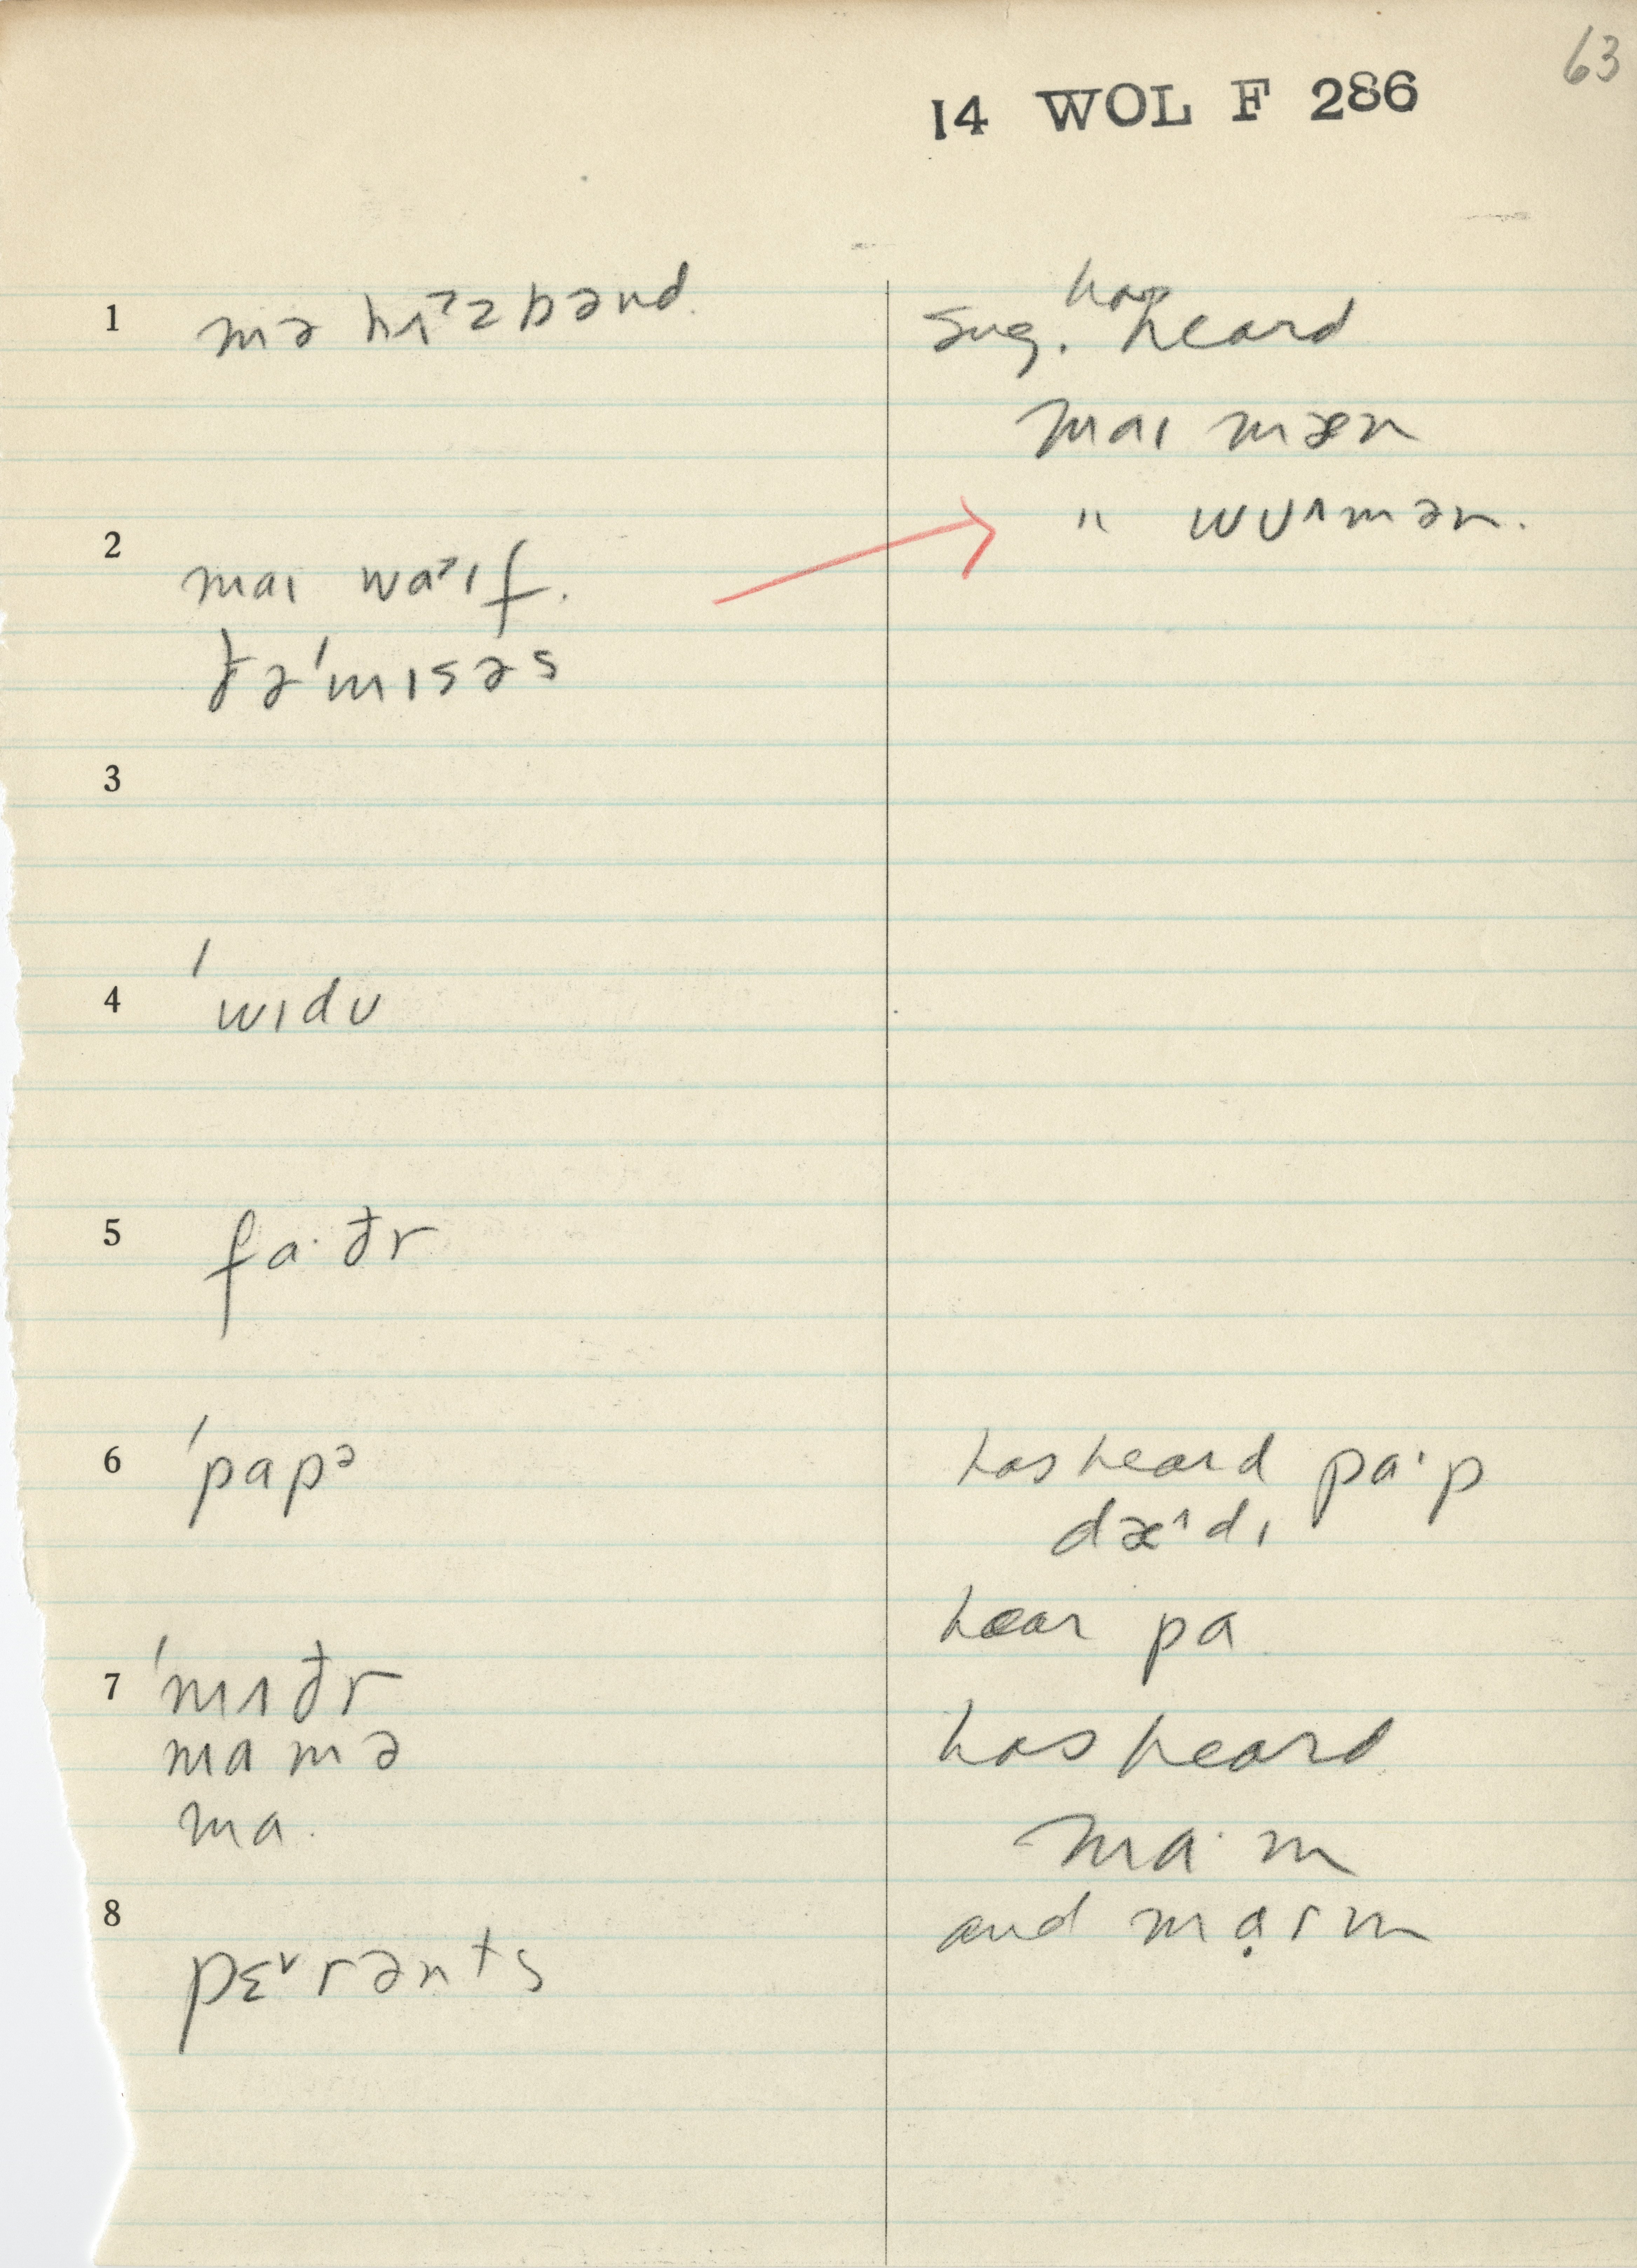 63
14 WOL F 286
1 mə hʌ˃zbənd.
sug. has heard
maɪ mæn
" wʊ˄mən.
2 maɪ wa˃ɪf.
ðə ˈmɪsəs
3
4 ˈwɪdʊ
5 fa·ðr
6 ˈpapə
has heard pa·p
dæ˄dɪ
hear pa
7 ˈmʌðr
mamə
ma.
has heard
ma·m
and mạrm
8 pɛ˅rənts